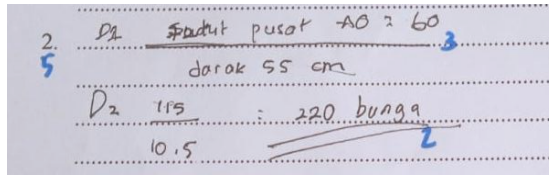 2. D1 Sudut pusat AO = 60 3
5 darak 55 cm
D2 115 : 220 bunga
10.5 2